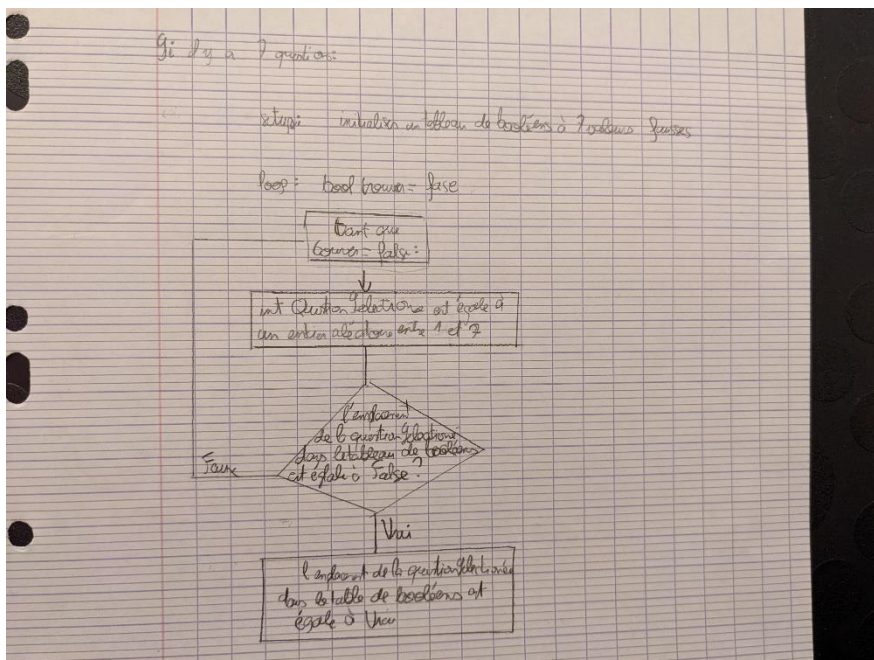 Si il y a 7 questions:
setup: initialiser un tableau de booléens à 7 valeurs fausses
loop: bool trouver = fase
Tant que
trouver = false:
int QuestionSelectionne est égale à
un entier aléatoire entre 1 et 7
l'emplacement
de la questionSelectionné
dans le tableau de booléens
est égale à False ?
Faux
Vrai
l'emplacement de la questionSelectionnée
dans la table de booléens est
égale à Vrai